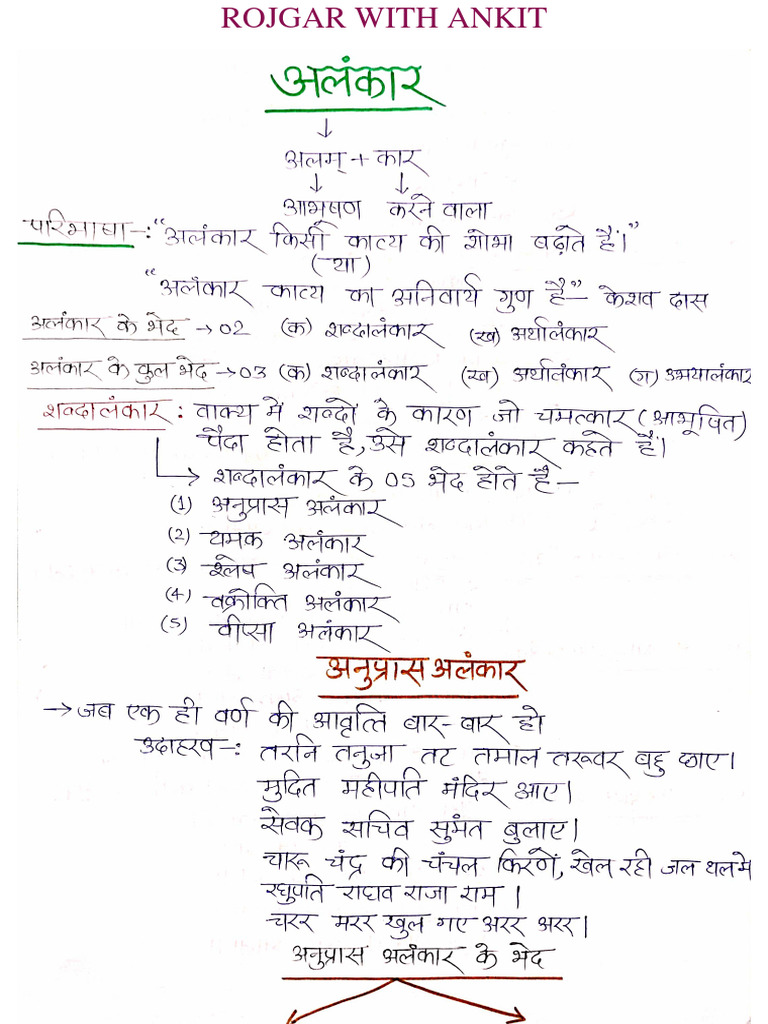 ROJGAR WITH ANKIT
अलंकार
↓
अलम् + कार
↓ ↓
आभूषण करने वाला
परिभाषा -: "अलंकार किसी काव्य की शोभा बढ़ाते हैं।"
(या)
"अलंकार काव्य का अनिवार्य गुण है" - केशव दास
अलंकार के भेद → 02 (क) शब्दालंकार (ख) अर्थालंकार
अलंकार के कुल भेद → 03 (क) शब्दालंकार (ख) अर्थालंकार (ग) उभयालंकार
शब्दालंकार : वाक्य में शब्दों के कारण जो चमत्कार (आभूषित)
पैदा होता है, उसे शब्दालंकार कहते हैं।
→ शब्दालंकार के 05 भेद होते हैं -
(1) अनुप्रास अलंकार
(2) यमक अलंकार
(3) श्लेष अलंकार
(4) वक्रोक्ति अलंकार
(5) वीप्सा अलंकार
अनुप्रास अलंकार
→ जब एक ही वर्ण की आवृत्ति बार-बार हो
उदाहरव -: तरनि तनुजा तट तमाल तरूवर बहु छाए।
मुदित महीपति मंदिर आए।
सेवक सचिव सुमंत बुलाए।
चारू चंद्र की चंचल किरणें, खेल रही जल थल में
रघुपति राघव राजा राम।
चरर मरर खुल गए अरर अरर।
अनुप्रास अलंकार के भेद